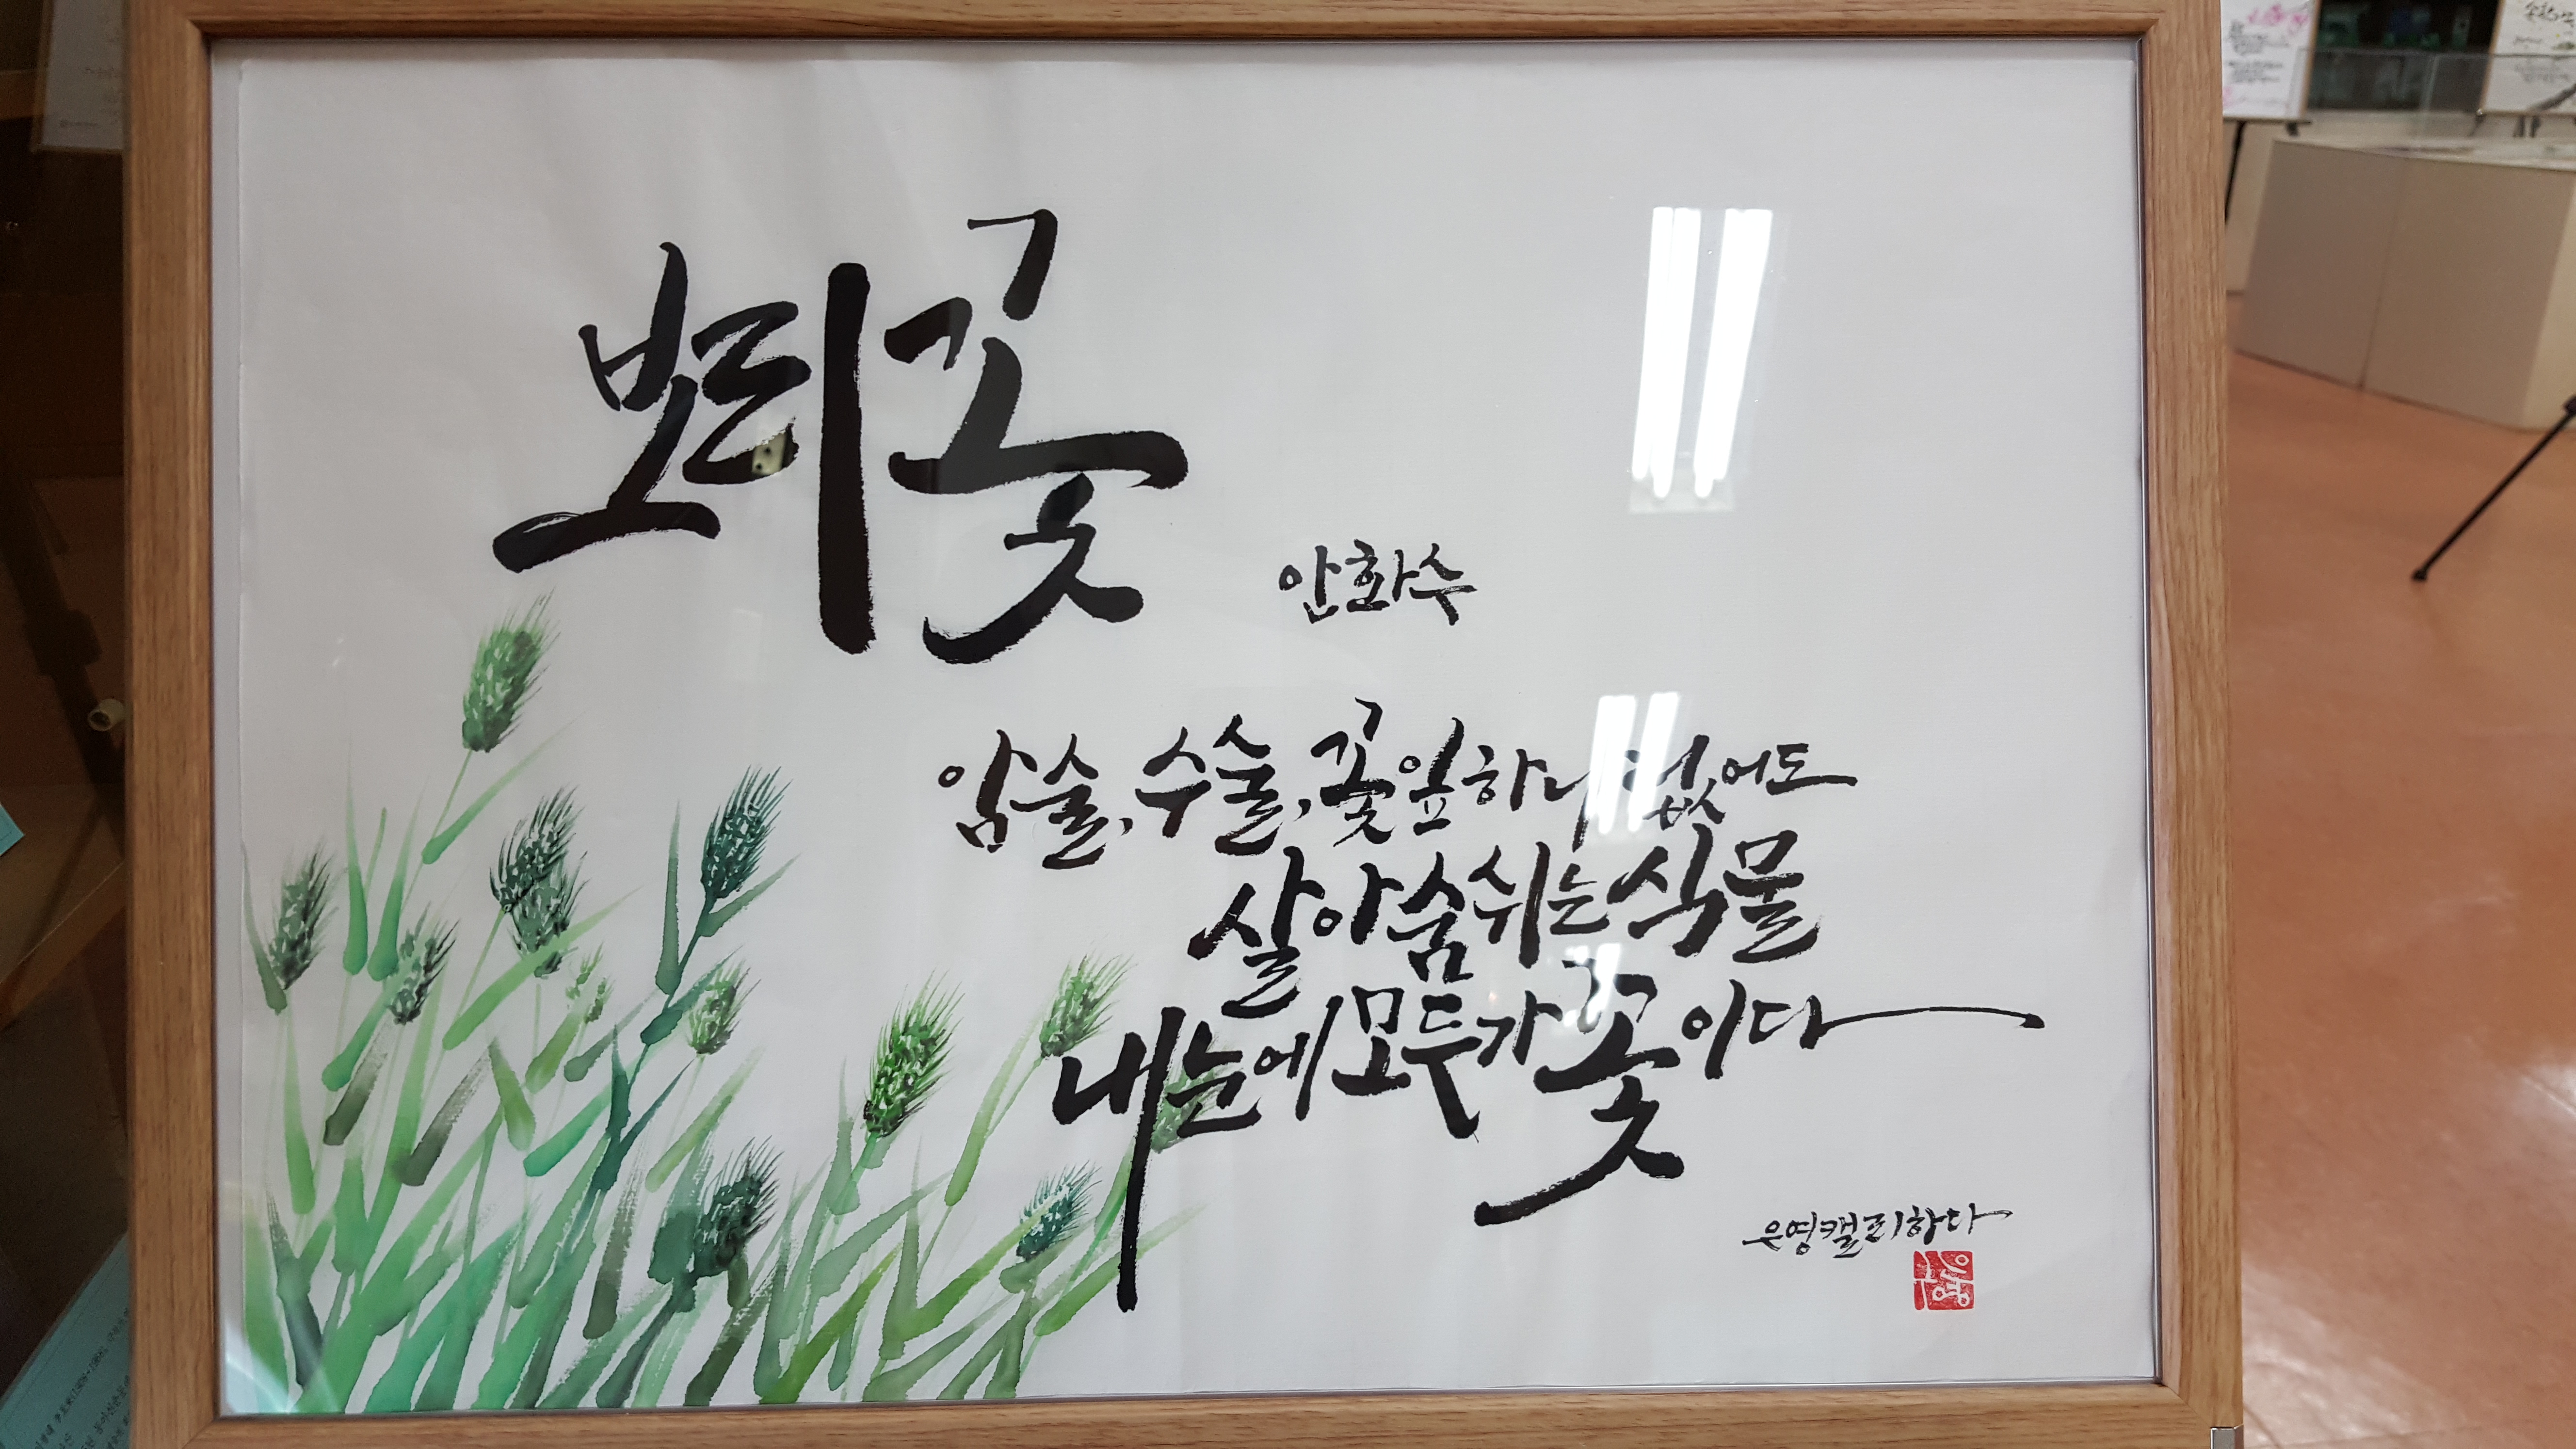 보리꽃
안화수
암술, 수술, 꽃잎 하나 없어도
살아 숨쉬는 식물
내 눈에 모두가 꽃이다
은영캘리하다